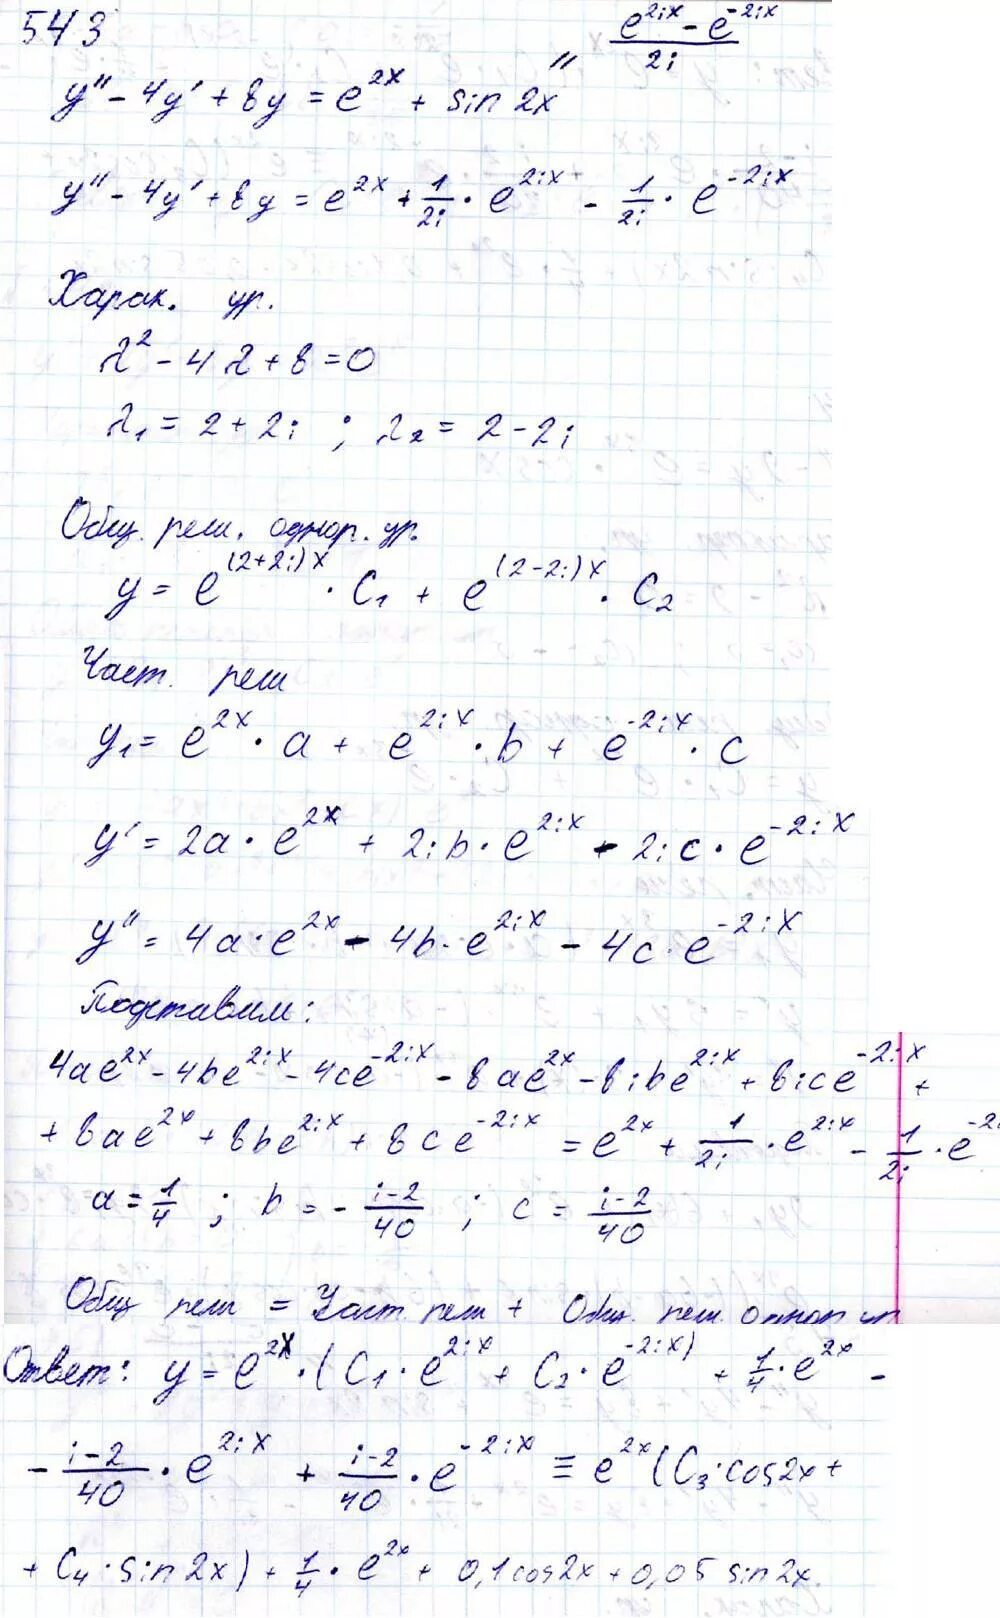 543
e^{2ix} - e^{-2ix}
2i
y'' - 4y' + 8y = e^{2x} + sin 2x
y'' - 4y' + 8y = e^{2x} + 1/2i · e^{2ix} - 1/2i · e^{-2ix}
Харак. ур.
λ² - 4λ + 8 = 0
λ₁ = 2 + 2i ; λ₂ = 2 - 2i
Общ. реш. однор. ур.
y = e^{(2+2i)x} · C₁ + e^{(2-2i)x} · C₂
Част. реш
y₁ = e^{2x} · a + e^{2ix} · b + e^{-2ix} · c
y' = 2a · e^{2x} + 2ib · e^{2ix} - 2ic · e^{-2ix}
y'' = 4a · e^{2x} - 4b · e^{2ix} - 4c · e^{-2ix}
Подставим:
4ae^{2x} - 4be^{2ix} - 4ce^{-2ix} - 8ae^{2x} - 8ibe^{2ix} + 8ice^{-2ix} +
+ 8ae^{2x} + 8be^{2ix} + 8ce^{-2ix} = e^{2x} + 1/2i · e^{2ix} - 1/2i · e^{-2i
a = 1/4 ; b = - (i-2)/40 ; c = (i-2)/40
Общ реш = Част реш + Общ. реш. однор ур
Ответ: y = e^{2x} · (C₁ · e^{2ix} + C₂ · e^{-2ix}) + 1/4 · e^{2x} -
- (i-2)/40 · e^{2ix} + (i-2)/40 · e^{-2ix} ≡ e^{2x} (C₃ · cos2x +
+ C₄ · sin 2x) + 1/4 · e^{2x} + 0,1 cos2x + 0,05 sin 2x.